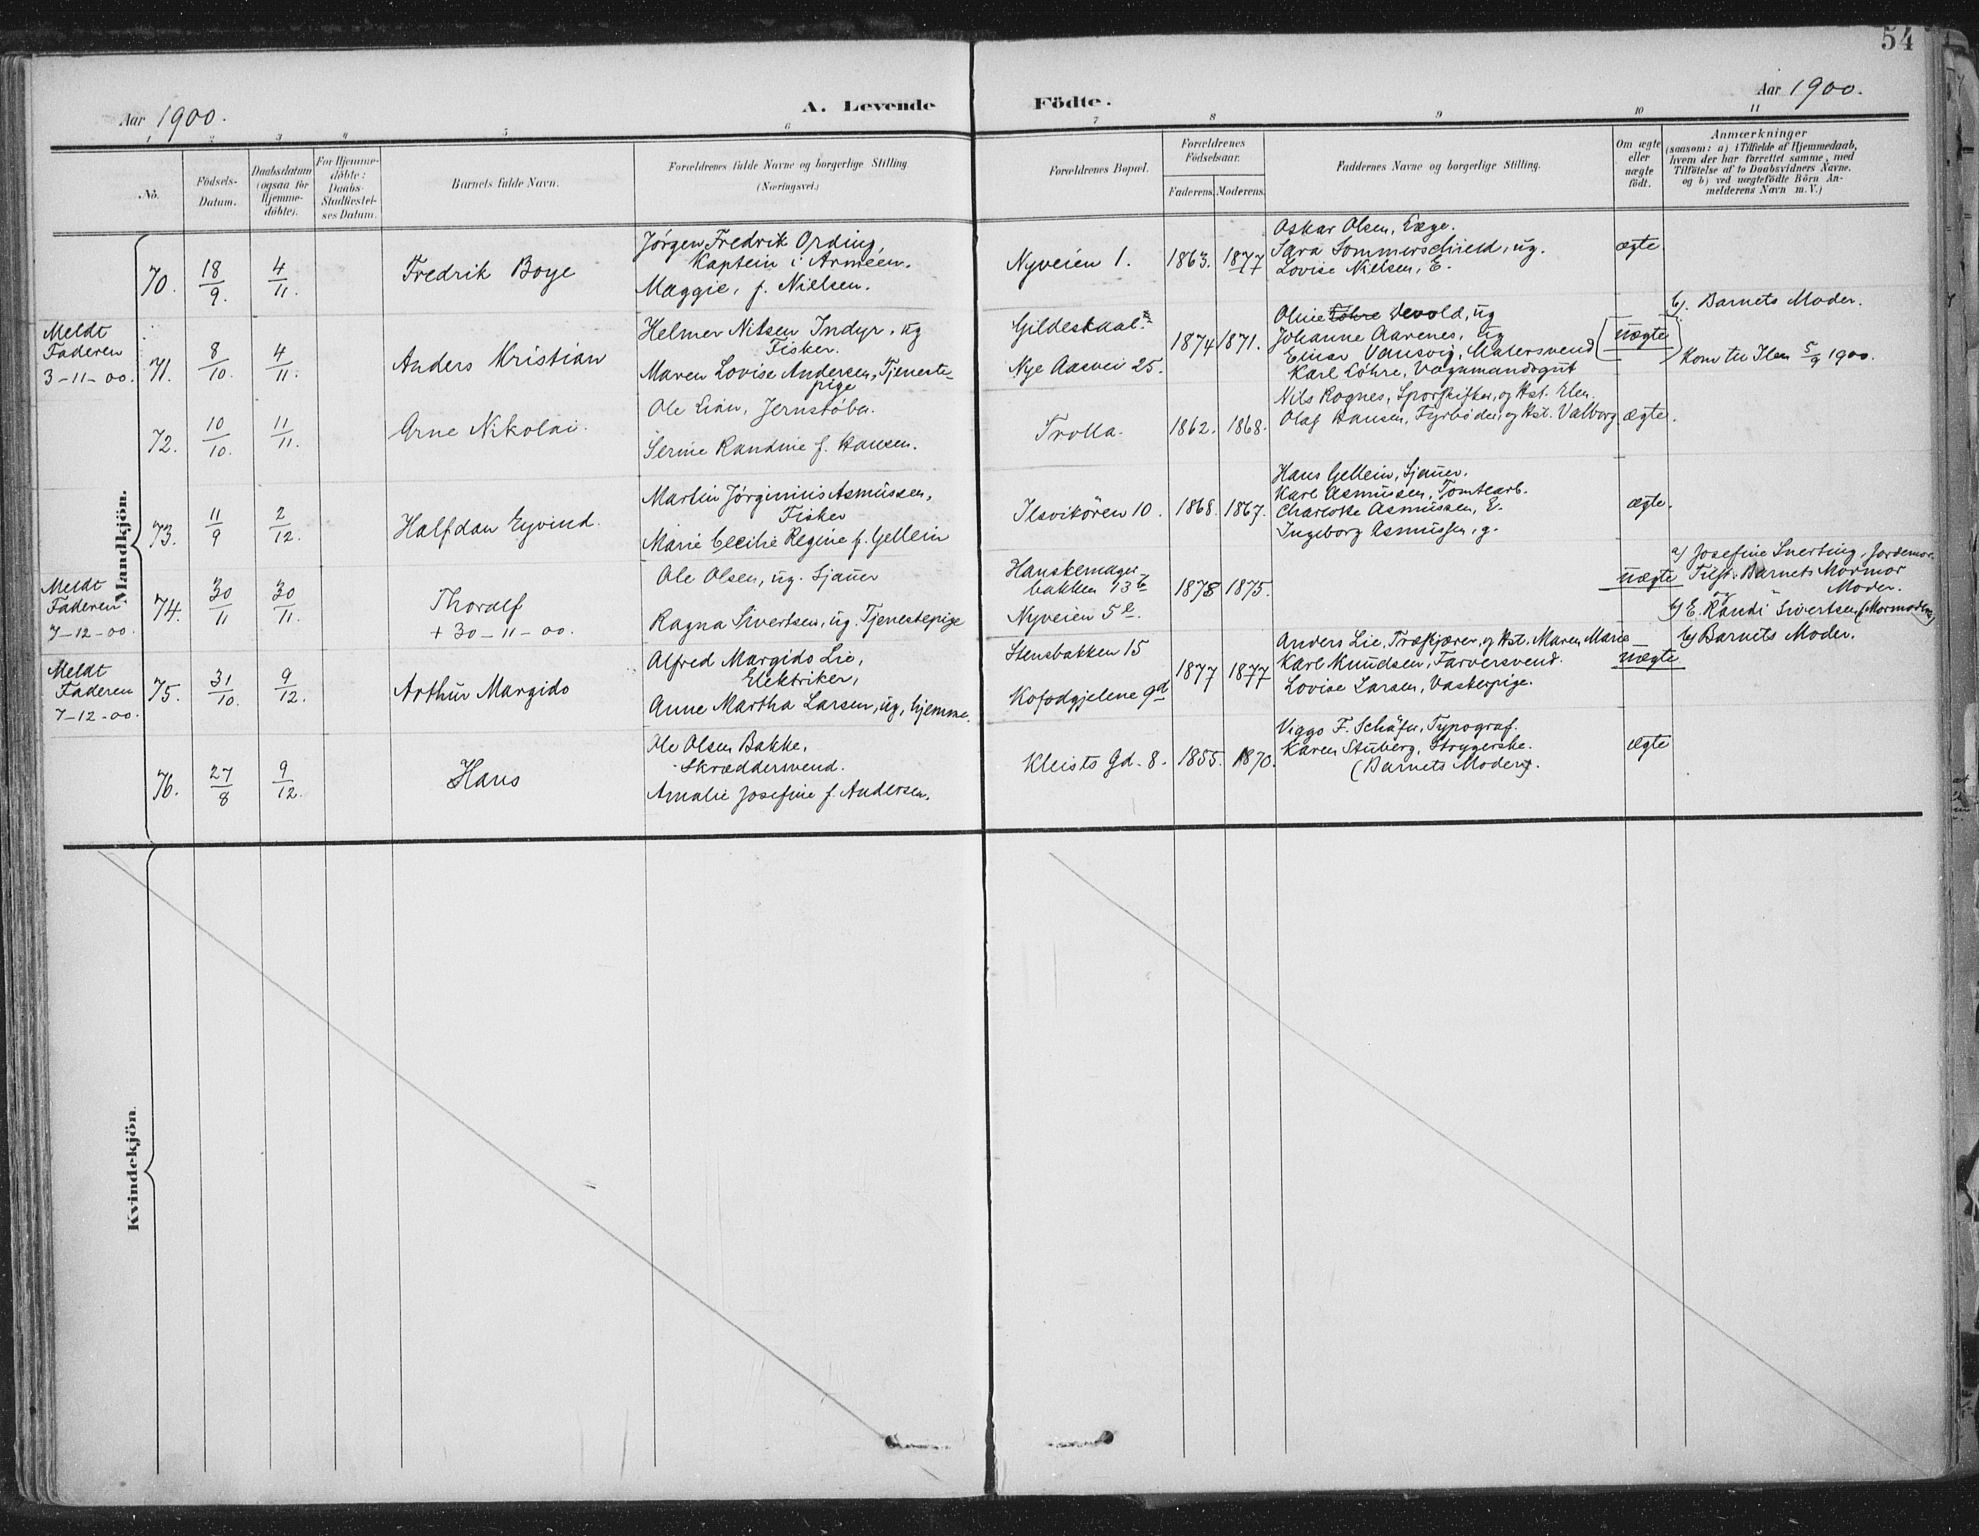 54
Aar 1900.
A. Levende Födte.
Aar 1900.
1 2 3 4 5 6 7 8 9 10 11
No.
Födsels-Datum.
Daabsdatum (ogsaa for Hjemme-döbte).
For Hjemme-döbte: Daabs-Stadfæstel-ses Datum.
Barnets fulde Navn.
Forældrenes fulde Navne og borgerlige Stilling
(Næringsvei.)
Forældrenes Bopæl.
Forældrenes Födselsaar.
Faderens. Moderens.
Faddernes Navne og borgerlige Stilling.
Om ægte eller uægte födt.
Anmærkninger
(saasom: a) i Tilfælde af Hjemmedaab,
hvem der har forrettet samme, med
Tilföielse af to Daabsvidners Navne,
og b) ved uægtefödte Börn An-
melderens Navn m. V.)
Mandkjön.
70. 18/9. 4/11. Fredrik Boye
Jörgen Fredrik Ording,
Kaptein i Armeen.
Maggie, f. Nielsen.
Nyveien 1. 1863. 1877
Oskar Olsen, Læge.
Sara Sommerschield, ug.
Lovise Nielsen, E.
ægte
Meldt
Faderen
3-11-00.
71. 8/10. 4/11. Anders Kristian
Helmer Nilsen Indyr, ug
Fisker.
Maren Lovise Andersen, Tjeneste-
pige
Gildeskaal
Nye Aasvei 25.
1874 1871.
Oline Löhre Devold, ug
Johanne Aarenes, ug
Einar Vansvig, Malersvend
Karl Löhre, Vognmandsgut
uægte
b). Barnets Moder.
Kom til Ilen 5/9 1900.
72. 10/10. 11/11. Arne Nikolai.
Ole Lian, Jernstöber.
Serine Randine f. Hansen.
Trolla. 1862. 1868.
Nils Rognes, Sporskifter, og Hst. Elen.
Olaf Hansen, Fyrböder, og Hst. Valborg
ægte.
73. 11/9 2/12. Halfdan Eyvind.
Martin Jörginius Asmussen,
Fisker
Marie Cecilie Regine f. Gellein
Ilsvikören 10. 1868. 1867.
Hans Gellein, Sjauer.
Karl Asmussen, Tomtearb.
Charlotte Asmussen, E.
Ingeborg Asmussen, g.
ægte.
Meldt
Faderen
7-12-00.
74. 30/11 30/11. Thoralf
+ 30-11-00.
Ole Olsen, ug. Sjauer
Ragna Sivertsen, ug. Tjenestepige
Hanskemager-
bakken 13 b
Nyveien 5
1878 1875.
uægte
a) Josefine Sverting, Jordemor
Tilst. Barnets Mormor
og " Moder.
b) E. Randi Sivertsen (Mormoder)
Meldt
Faderen
7-12-00.
75. 31/10. 9/12. Arthur Margido
Alfred Margido Lie,
Elektriker,
Anne Martha Larsen, ug, hjemme.
Stensbakken 15
Kofodgjelene 9d
1877 1877
Anders Lie, Træskjærer, og Hst. Maren Marie
Karl Knudsen, Farversvend.
Lovise Larsen, Vaskepige.
uægte
b) Barnets Moder.
76. 27/8 9/12. Hans
Ole Olsen Bakke,
Skræddersvend.
Amalie Josefine f. Andersen.
Kleists Gd. 8. 1855. 1870.
Viggo F. Schäfer, Typograf.
Karen Stuberg, Strygerske.
(Barnets Moder).
ægte
Kvindekjön.